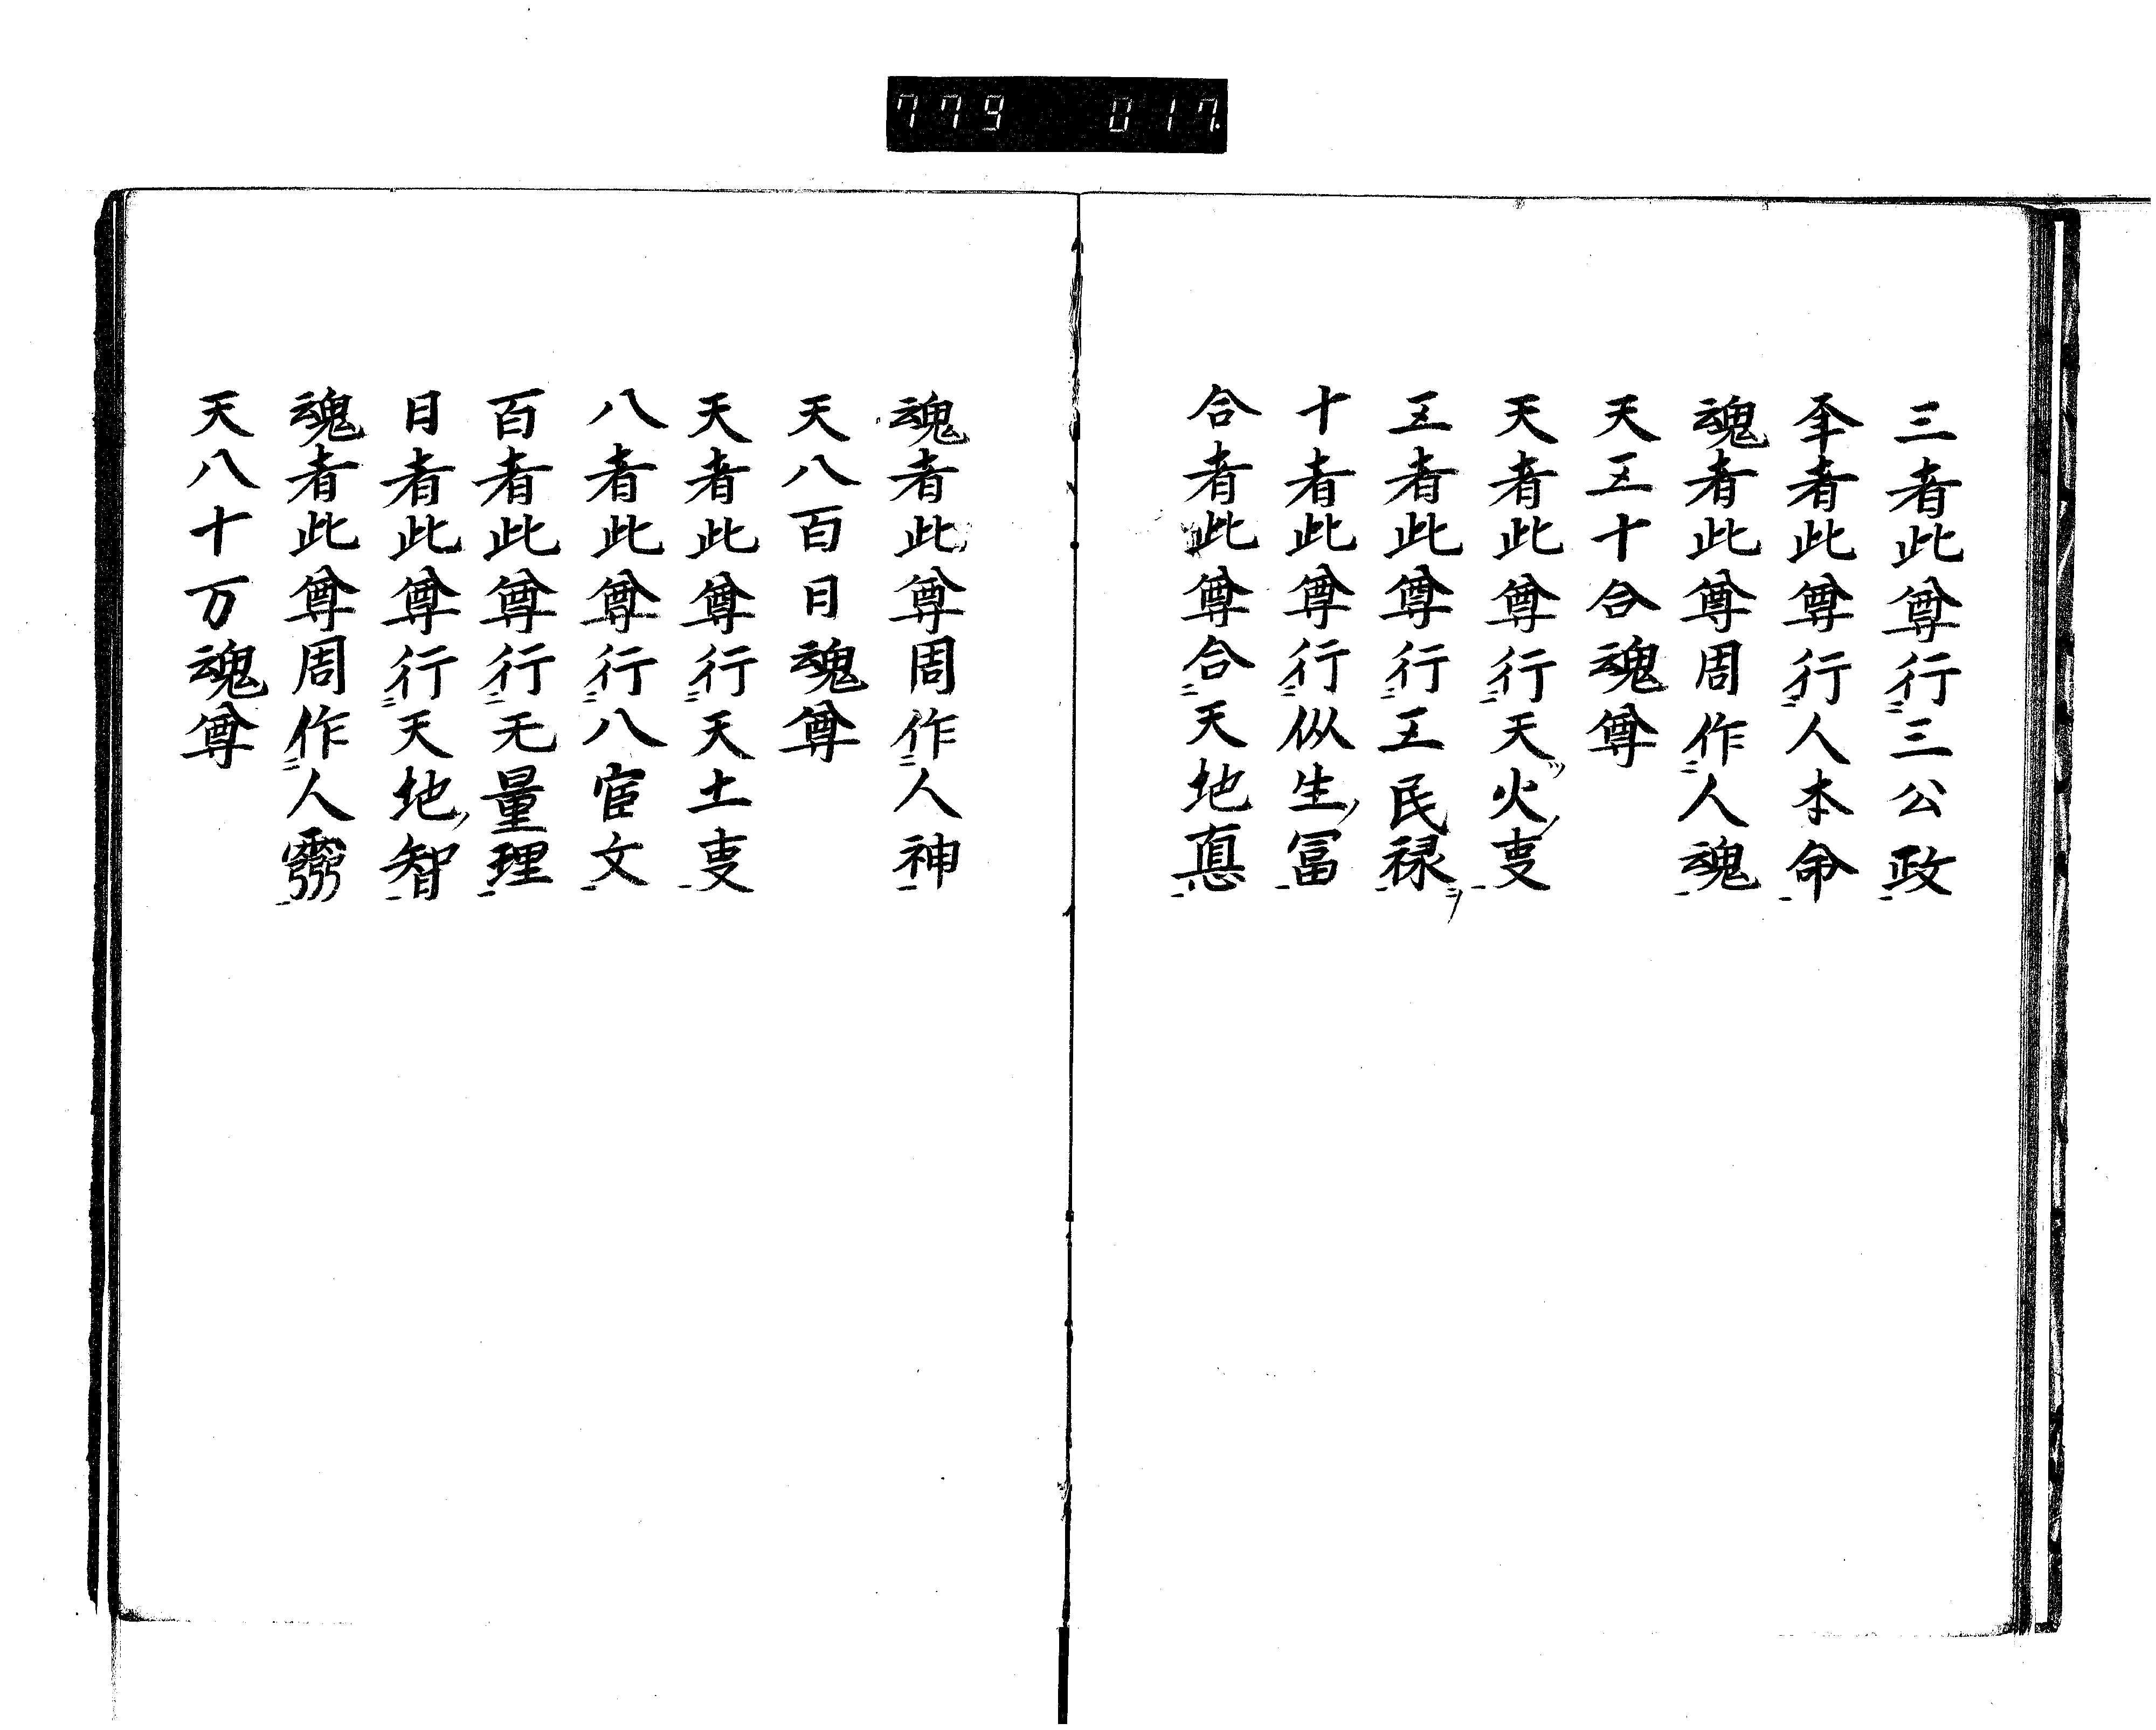 779 017.
三者此尊行三公政
夲者此尊行人本命
魂者此尊周作人魂
天五十合魂尊
天者此尊行天火叓
五者此尊行王民禄
十者此尊行似生冨
合者此尊合天地
魂者此尊周作人神
天八百日魂尊
天者此尊行天土叓
八者此尊行八宦文
百者此尊行无量理
日者此尊行天地智
魂者此尊周作人
天八十万魂尊